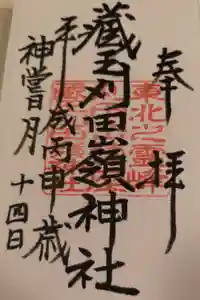 奉拝
東北之霊峰
藏王刈田嶺神社
平成丙申歳
神嘗月
十四日